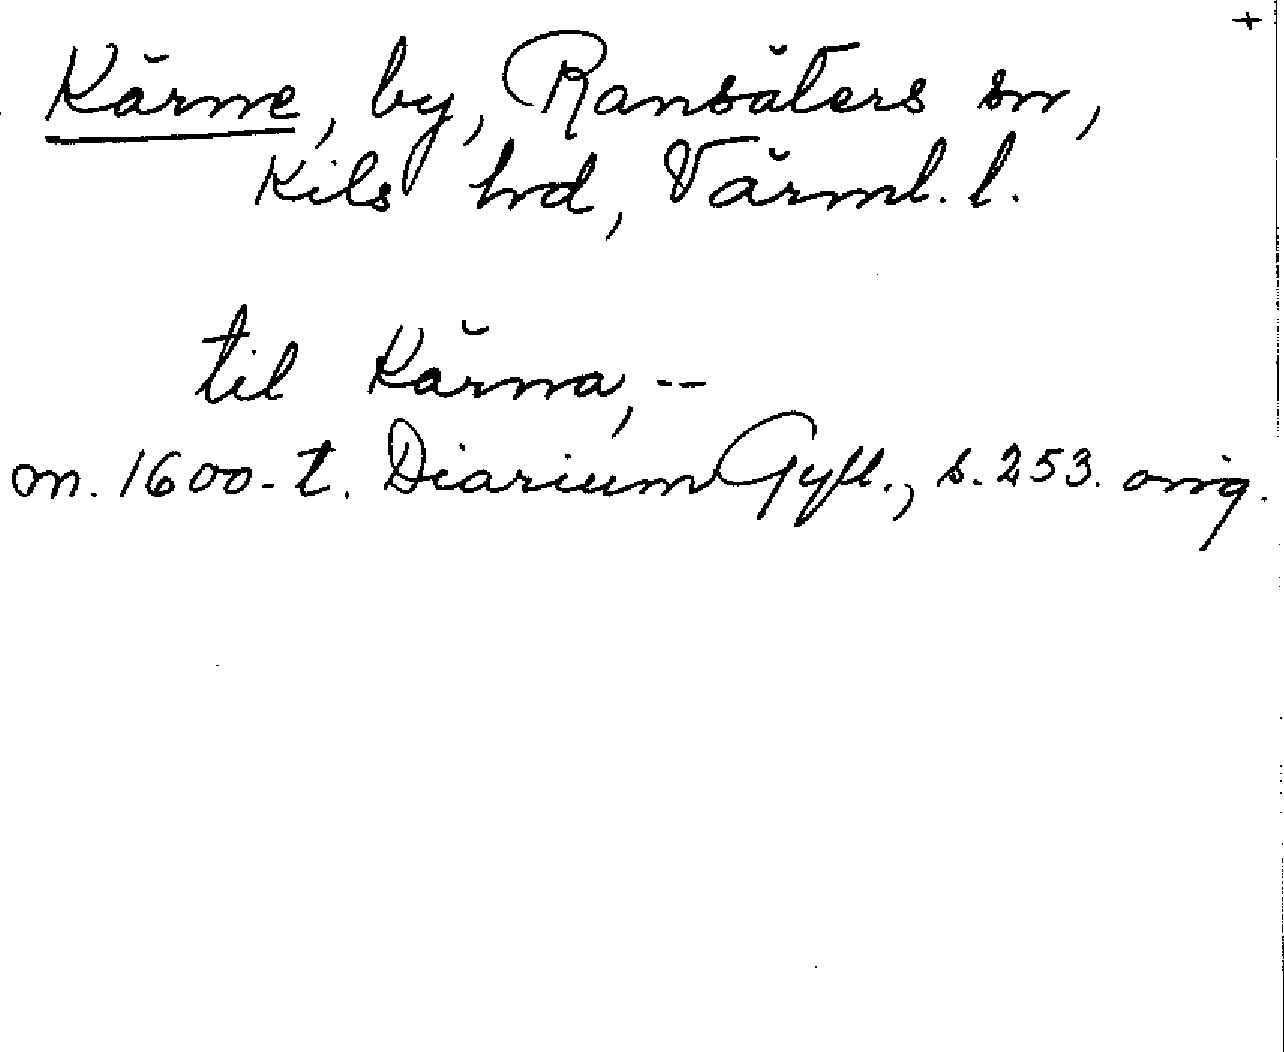 +
Kärne, by, Ransäters sn,
Kils hrd, Värml. l.
til Kärna, --
m. 1600-t. Diarium Gyll., s. 253. orig.